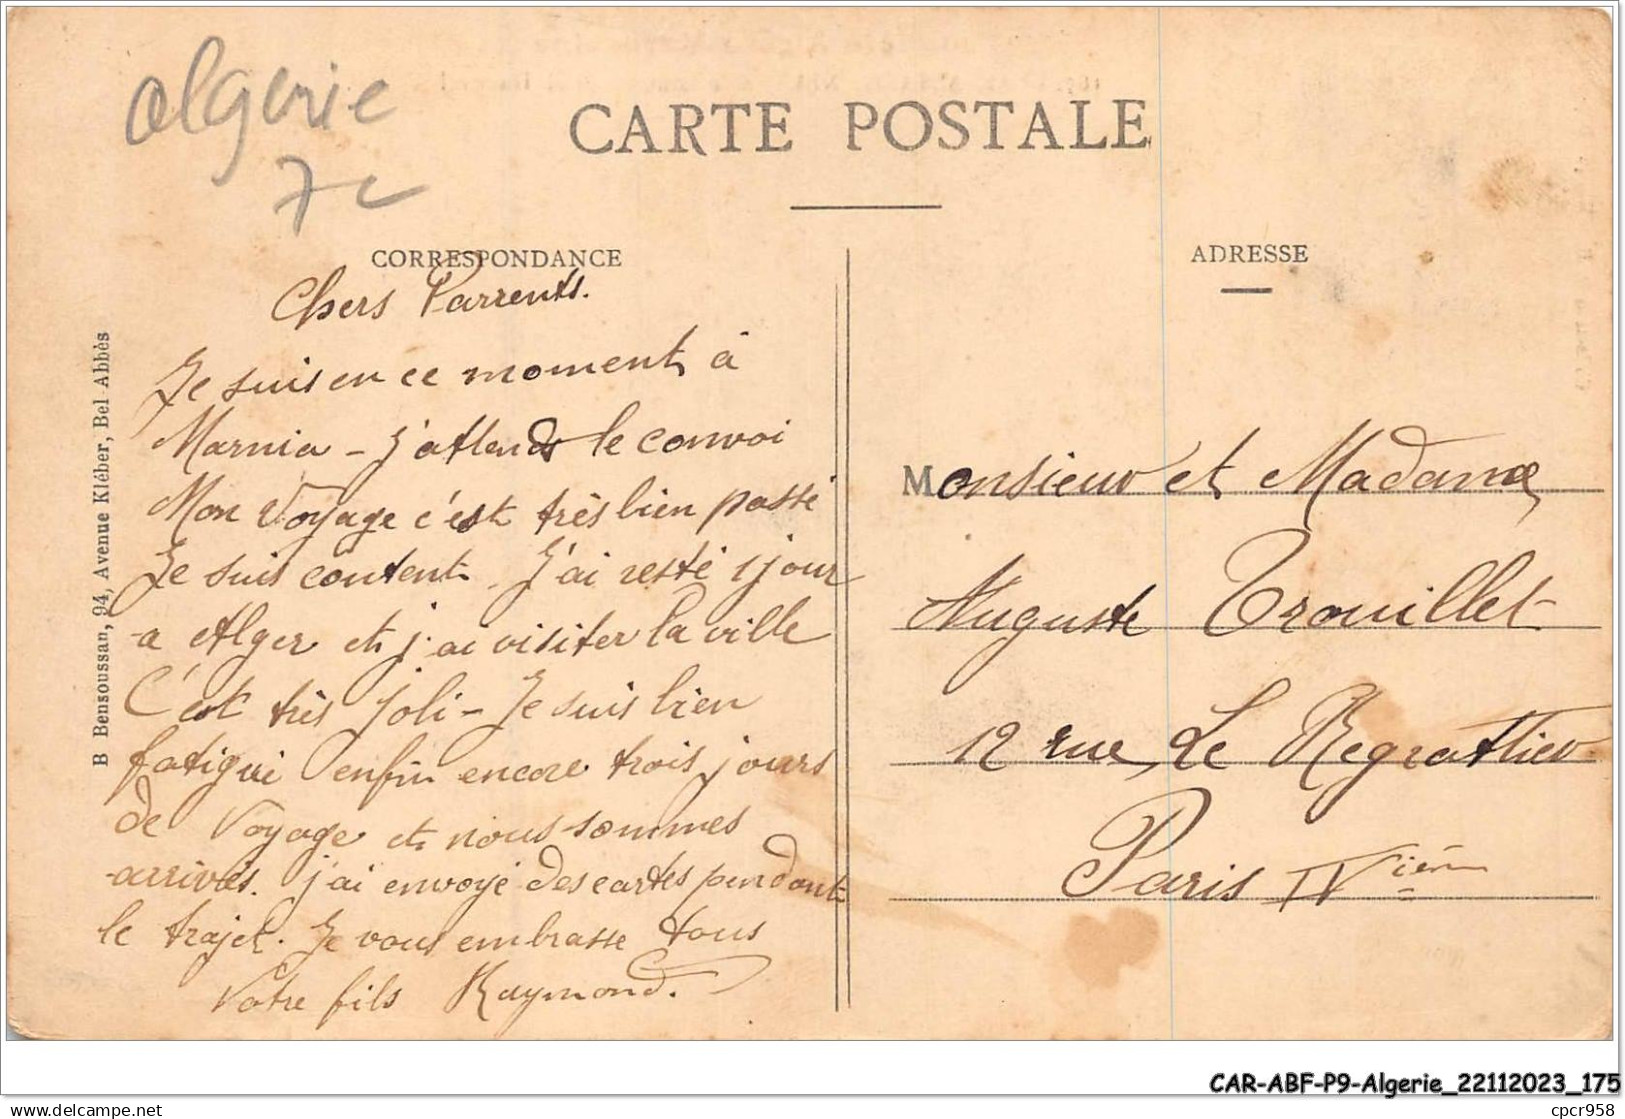 Algerie
7c
CARTE POSTALE
CORRESPONDANCE
ADRESSE
Chers Parrents.
Je suis en ce moment à
Marnia - J'attends le convoi
Mon Voyage c'est très bien passé
Je suis content. J'ai resté 1 jour
a Alger et j'ai visiter la ville
C'est très joli - Je suis bien
fatigué enfin encore trois jours
de Voyage et nous sommes
arrivés. j'ai envoyé des cartes pendant
le trajet. Je vous embrasse tous
Votre fils Raymond.
B Bensoussan, 94, Avenue Kléber, Bel-Abbès
Monsieur et Madame
Auguste Trouillet
12 rue Le Regrattier
Paris IVièm
CAR-ABF-P9-Algerie_22112023_175
delcampe.net
cpcr958